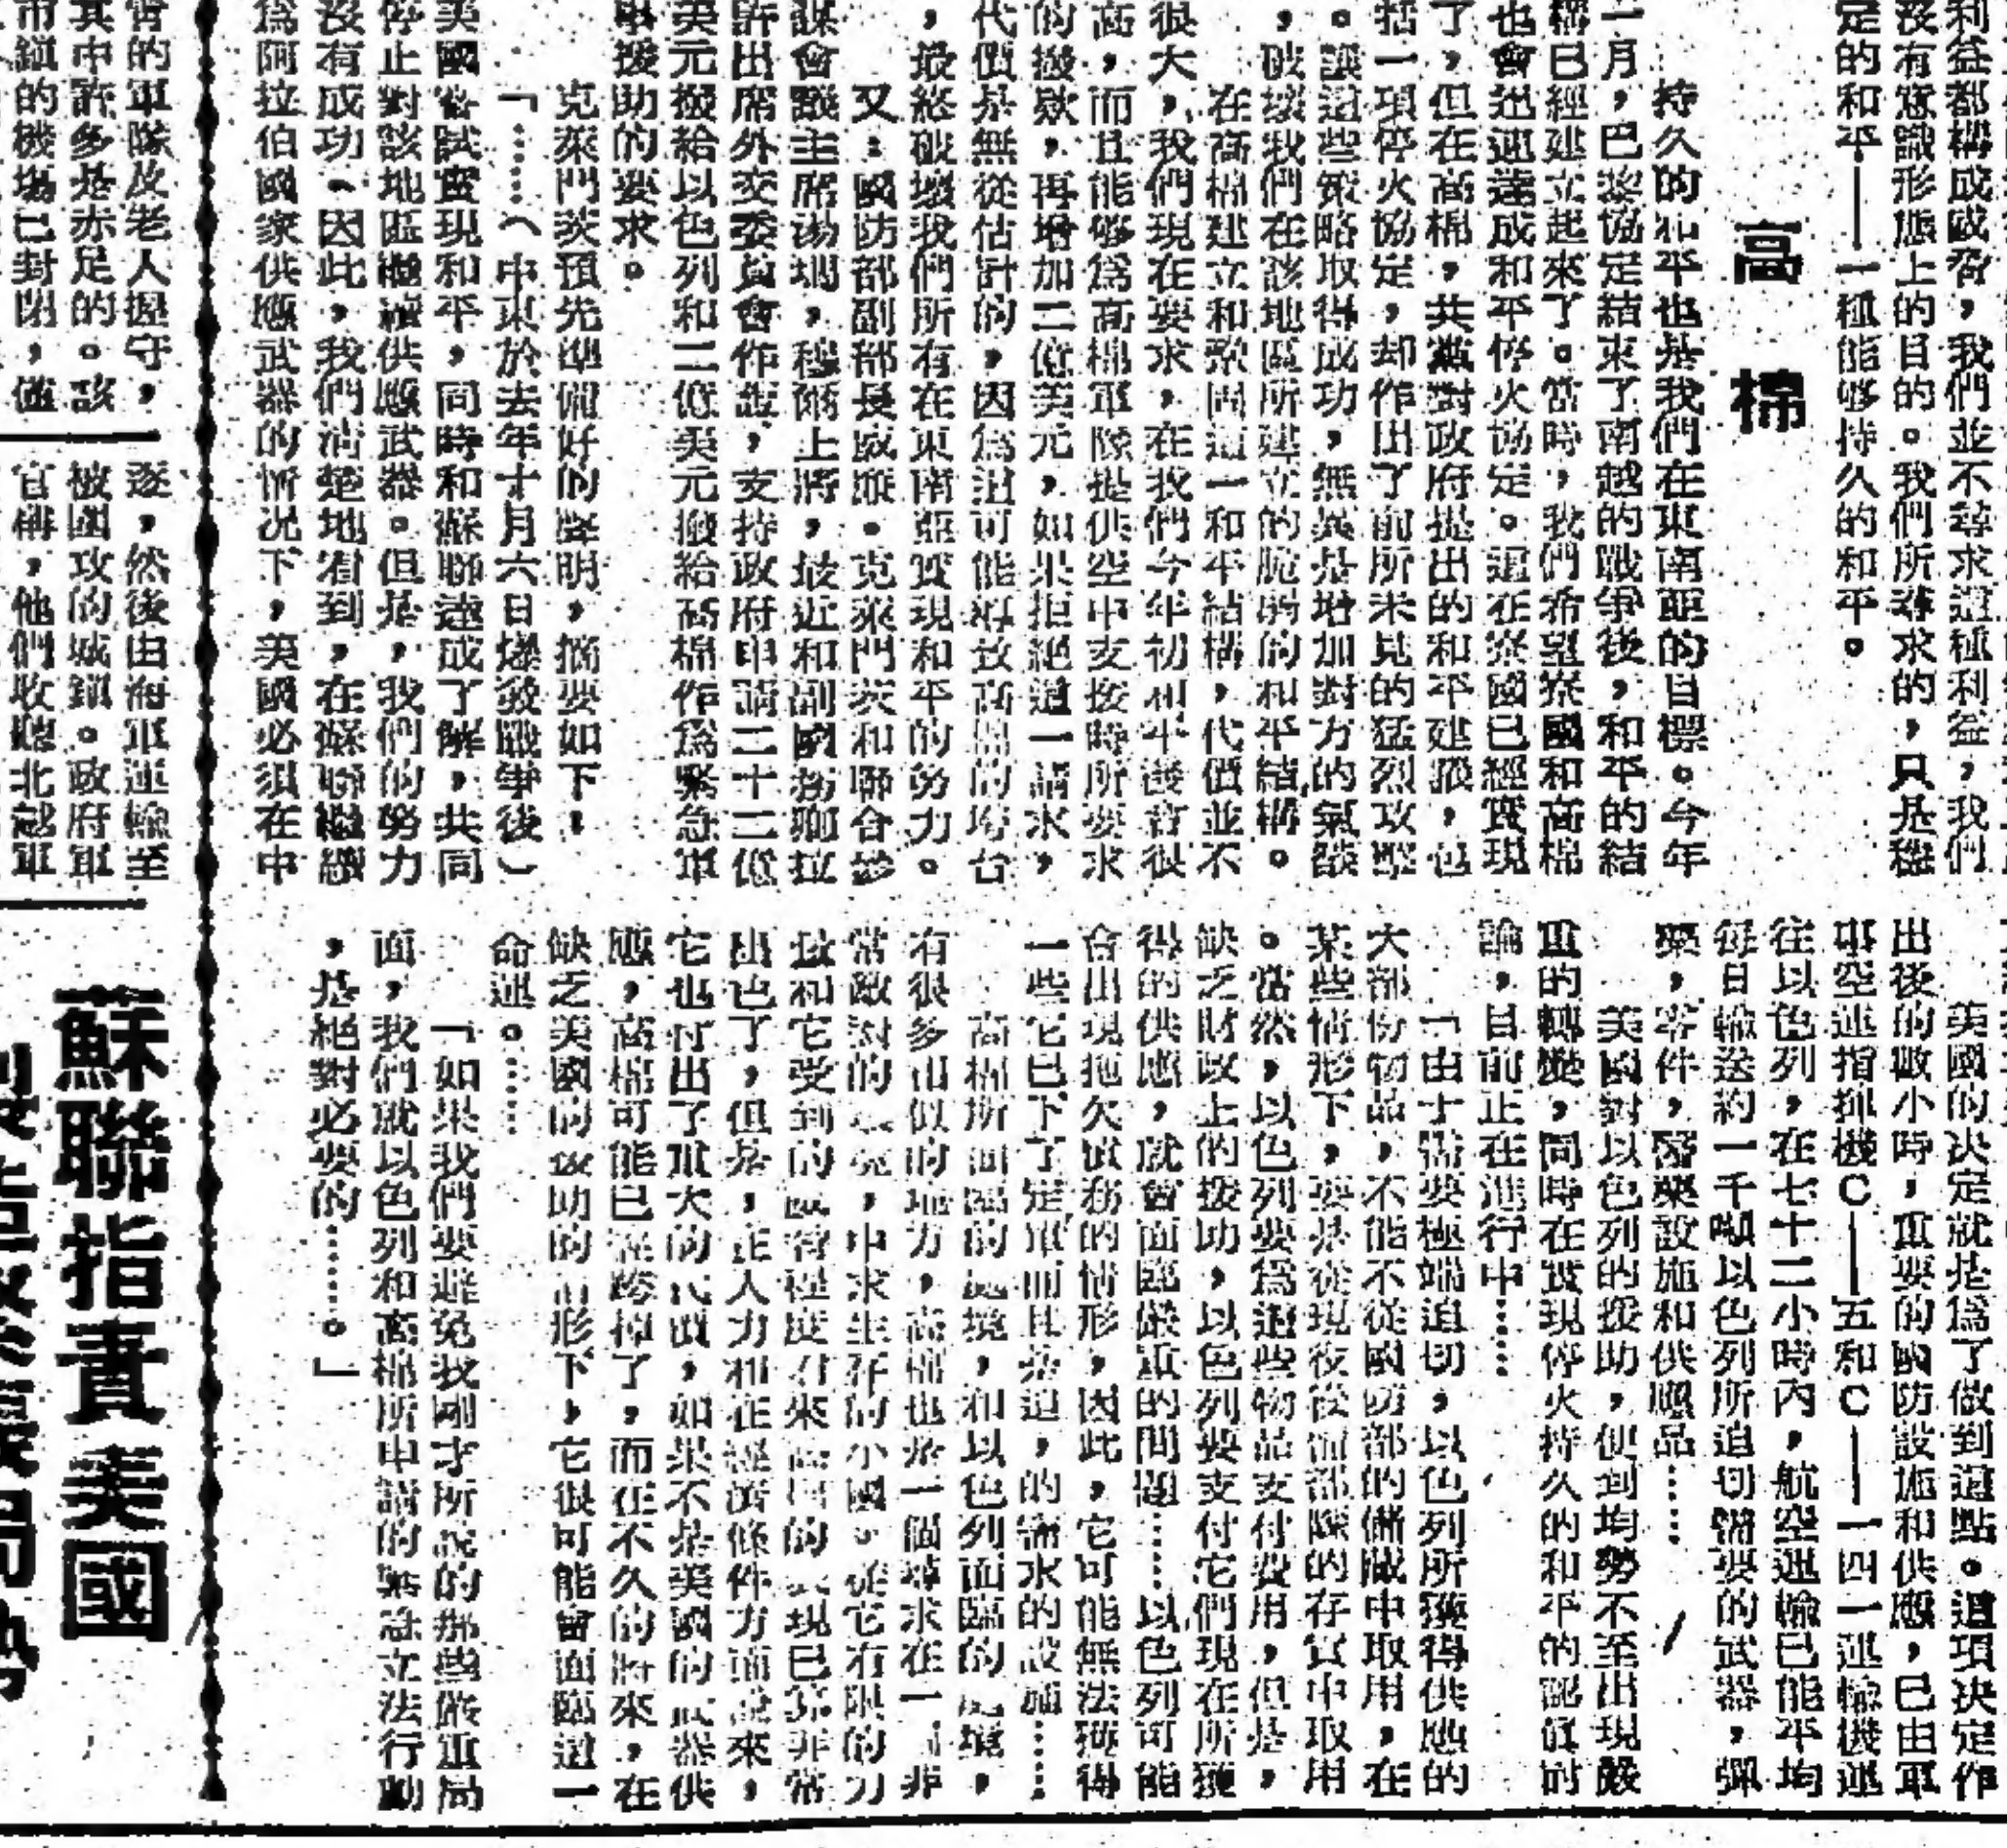 利益都構成威脅，我們並不尋求這種利益，我們
沒有意識形態上的目的。我們所尋求的，只是穩
定的和平——一種能够持久的和平。
高棉
持久的和平也是我們在東南亞的目標。今年
一月，巴黎協定結束了南越的戰爭後，和平的結
構已經建立起來了。當時，我們希望寮國和高棉
也會迅速達成和平停火協定。這在寮國已經實現
了，但在高棉，共黨對政府提出的和平建議，包
括一項停火協定，却作出了前所未見的猛烈攻擊
。讓這些策略取得成功，無異是增加對方的氣燄
，破壞我們在該地區所建立的脆弱的和平結構。
在高棉建立和鞏固這一和平結構，代價並不
很大，我們現在要求，在我們今年初和平後會很
高，而且能够爲高棉軍隊提供空中支援時所要求
的撥欵，再增加二億美元，如果拒絕這一請求，
代價是無從估計的，因爲這可能導致高棉的垮台
，最終破壞我們所有在東南亞實現和平的努力。
又：國防部副部長威廉。克萊門茨和聯合參
謀會議主席湯瑪，穆爾上將，最近和副國務卿拉
許出席外交委員會作證，支持政府申請二十二億
美元撥給以色列和二億美元撥給高棉作爲緊急軍
事援助的要求。
克萊門茨預先準備好的聲明，摘要如下：
「……（中東於去年十月六日爆發戰爭後）
美國嘗試實現和平，同時和蘇聯達成了解，共同
停止對該地區繼續供應武器。但是，我們的努力
沒有成功。因此，我們清楚地看到，在蘇聯繼續
爲阿拉伯國家供應武器的情况下，美國必須在中
美國的決定就是爲了做到這點。這項決定作
出後的數小時，重要的國防設施和供應，已由軍
事空運指揮機C——五和C——一四一運輸機運
往以色列，在七十二小時內，航空運輸已能平均
每日輸送約一千噸以色列所迫切需要的武器，彈
藥，零件，醫藥設施和供應品……
美國對以色列的援助，使到均勢不至出現嚴
重的轉變，同時在實現停火持久的和平的認眞討
論，目前正在進行中……
「由于需要極端迫切，以色列所獲得供應的
大部份物品，不能不從國防部的儲藏中取用，在
某些情形下，要是從現役後備部隊的存貨中取用
。當然，以色列要爲這些物品支付費用，但是，
缺乏財政上的援助，以色列要支付它們現在所獲
得的供應，就會面臨嚴重的問題……以色列可能
會出現拖欠債務的情形，因此，它可能無法獲得
一些它已下了定單而且急迫，的需水的設施……
高棉所面臨的處境，和以色列面臨的處境，
有很多相似的地方，高棉也是一個尋求在一個非
常敵對的環境，中求生存的小國。從它有限的力
量和它受到的威脅程度看來高棉的表現已算非常
出色了，但是，在人力和在經濟條件方面說來，
它也付出了重大的代價，如果不是美國的武器供
應，高棉可能已經跨掉了，而在不久的將來，在
缺乏美國的援助的情形下，它很可能會面臨這一
命運。……
「如果我們要避免我剛才所說的那些嚴重局
面，我們就以色列和高棉所申請的緊急立法行動
，是絕對必要的……。」
的軍隊及老人握守，
其中許多是赤足的。該
市鎮的機場已封閉，僅
逐，然後由海軍運輸至
被圍攻的城鎮。政府軍
官稱，他們收聽北越軍
蘇聯指責美國